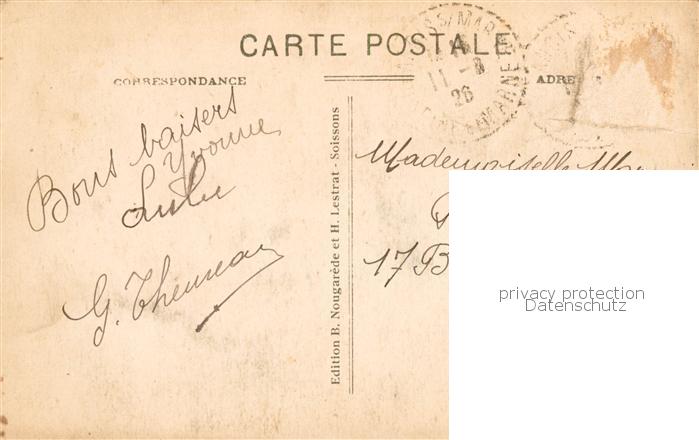 CARTE POSTALE
CORRESPONDANCE
ADRE
11 - 8
26
MARNE
Bons baisers
Yvonne
Lulu
G. Theuneau
Edition B. Nougarède et H. Lestrat - Soissons
Mademoiselle
17 B
privacy protection
Datenschutz